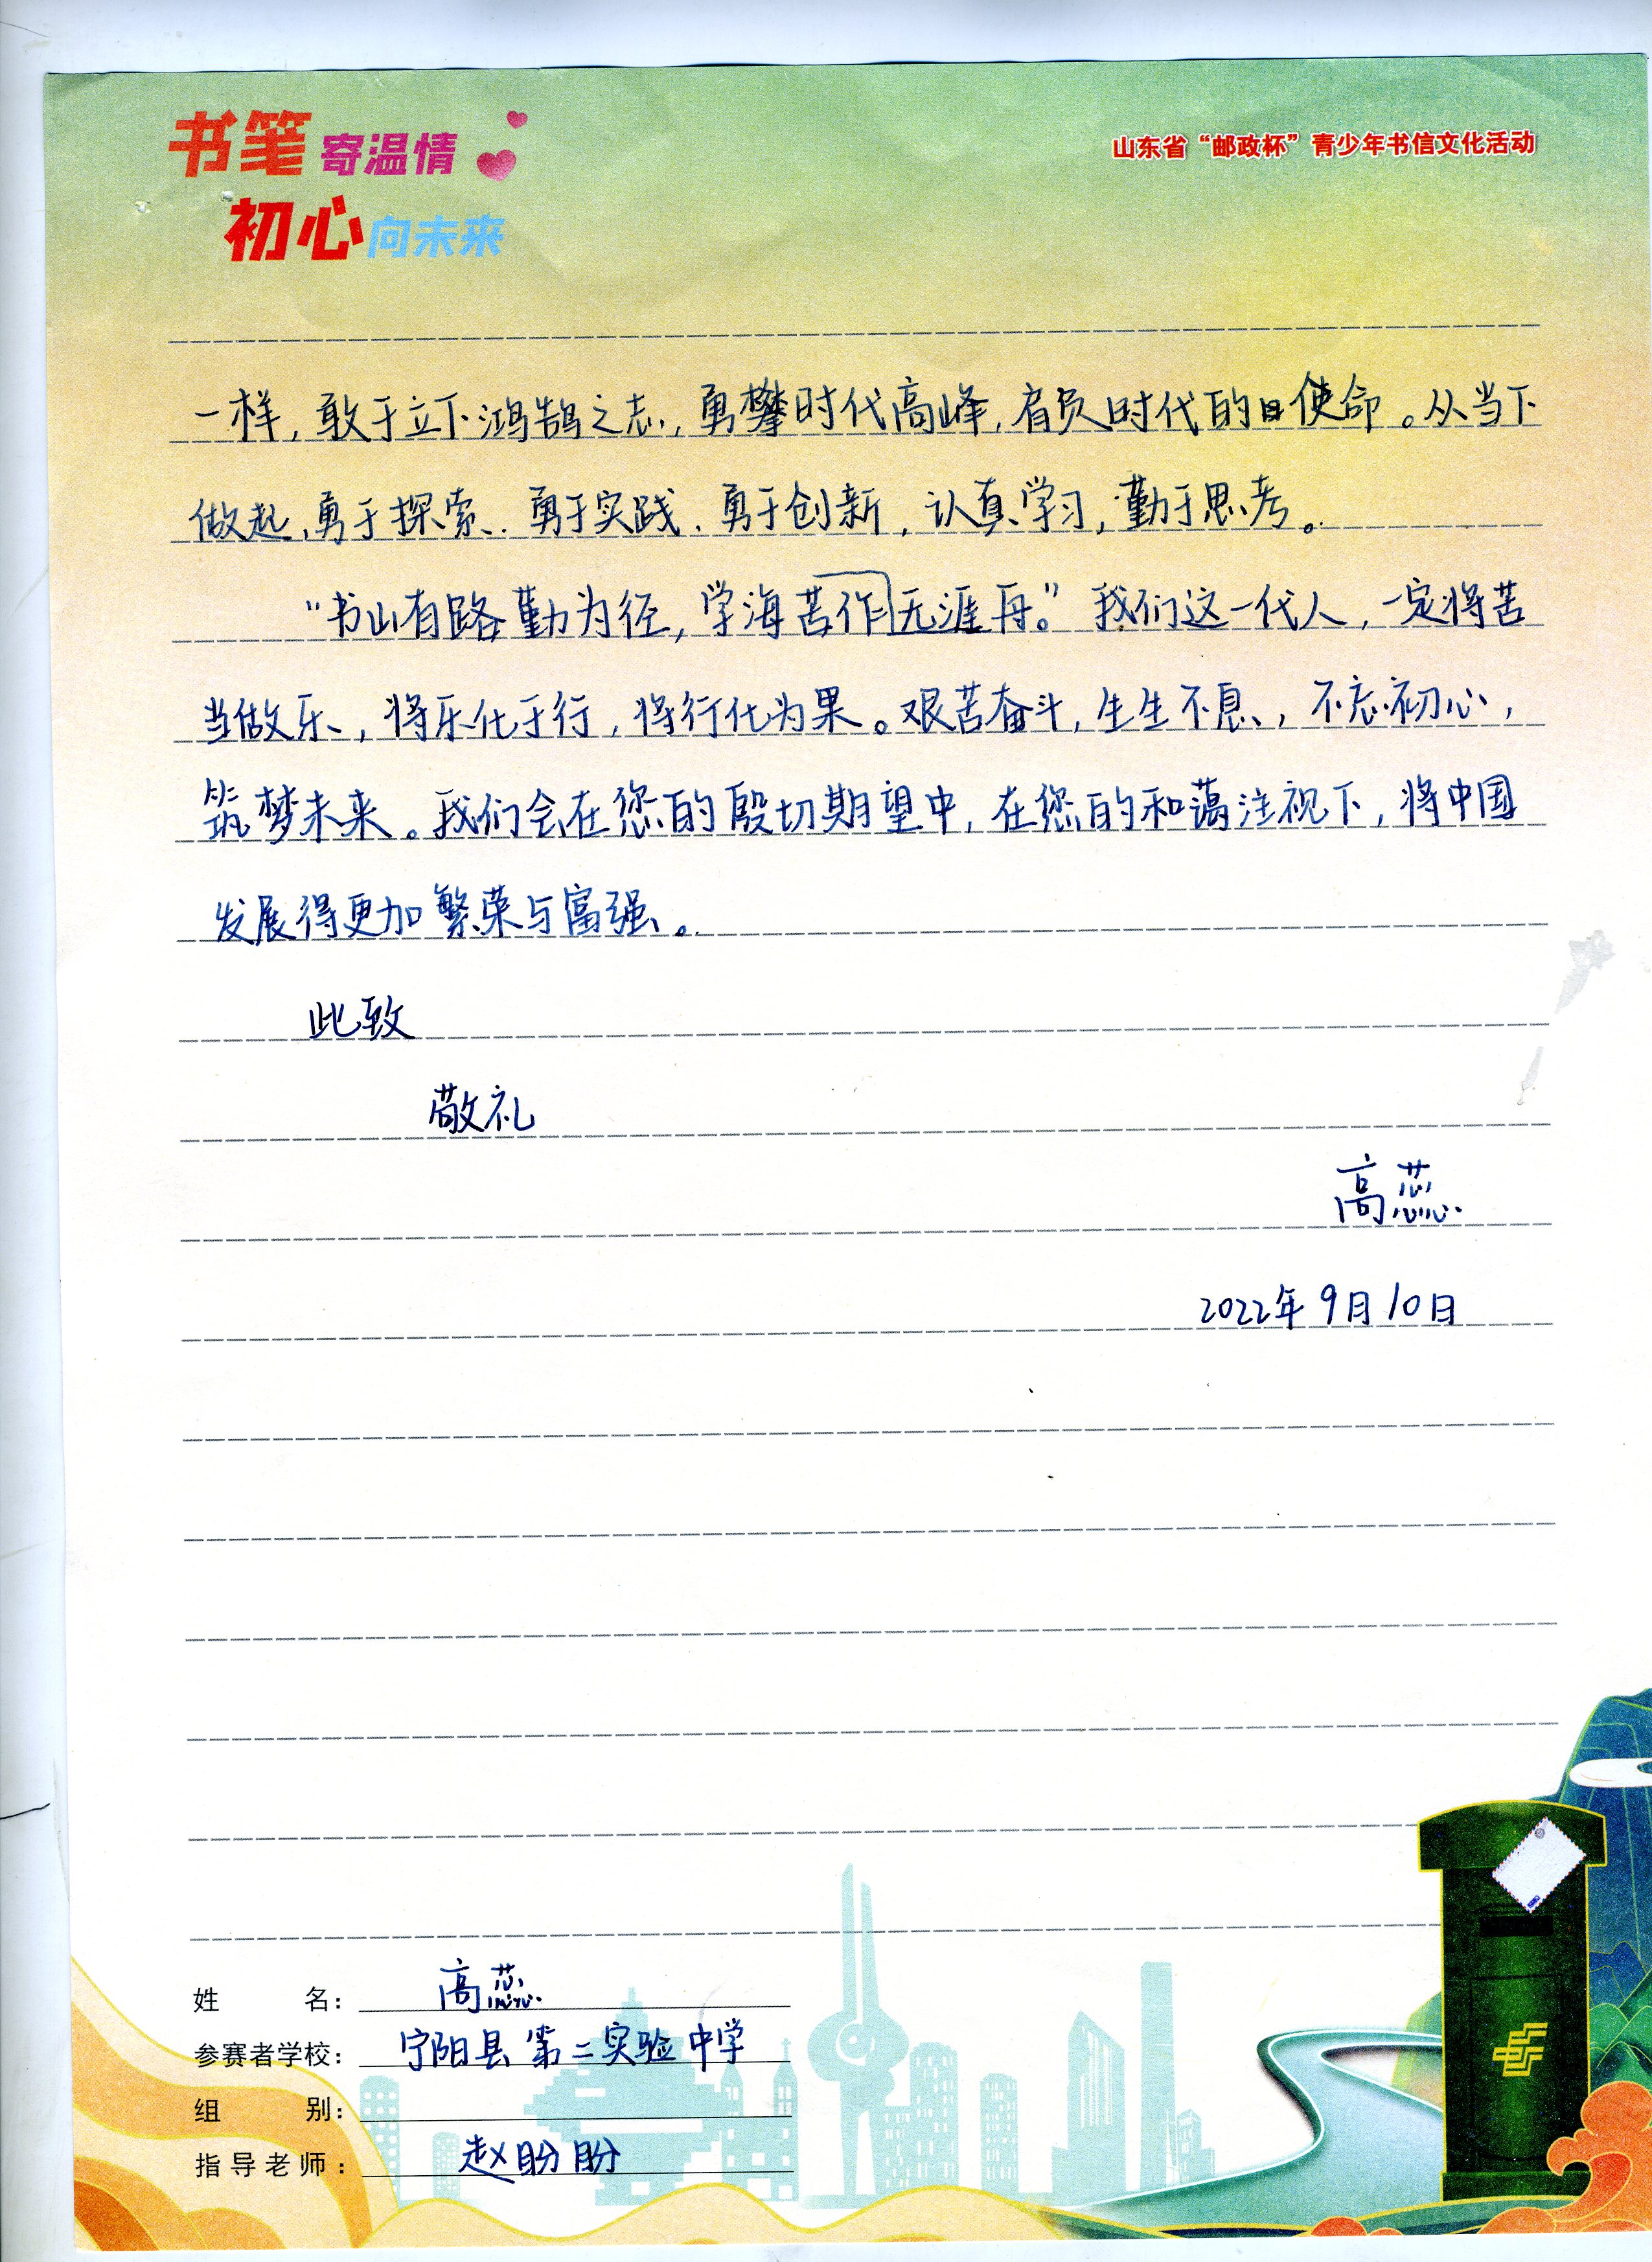 书笔寄温情
初心向未来
山东省“邮政杯”青少年书信文化活动
一样，敢于立下鸿鹄之志，勇攀时代高峰，肩负时代的使命。从当下
做起，勇于探索、勇于实践、勇于创新，认真学习，勤于思考。
“书山有路勤为径，学海苦作无涯舟。”我们这一代人，一定将苦
当做乐，将乐化于行，将行化为果。艰苦奋斗，生生不息，不忘初心，
筑梦未来。我们会在您的殷切期望中，在您的和蔼注视下，将中国
发展得更加繁荣与富强。
此致
敬礼
高蕊
2022年9月10日
姓 名：高蕊
参赛者学校：宁阳县第二实验中学
组 别：
指导老师：赵盼盼